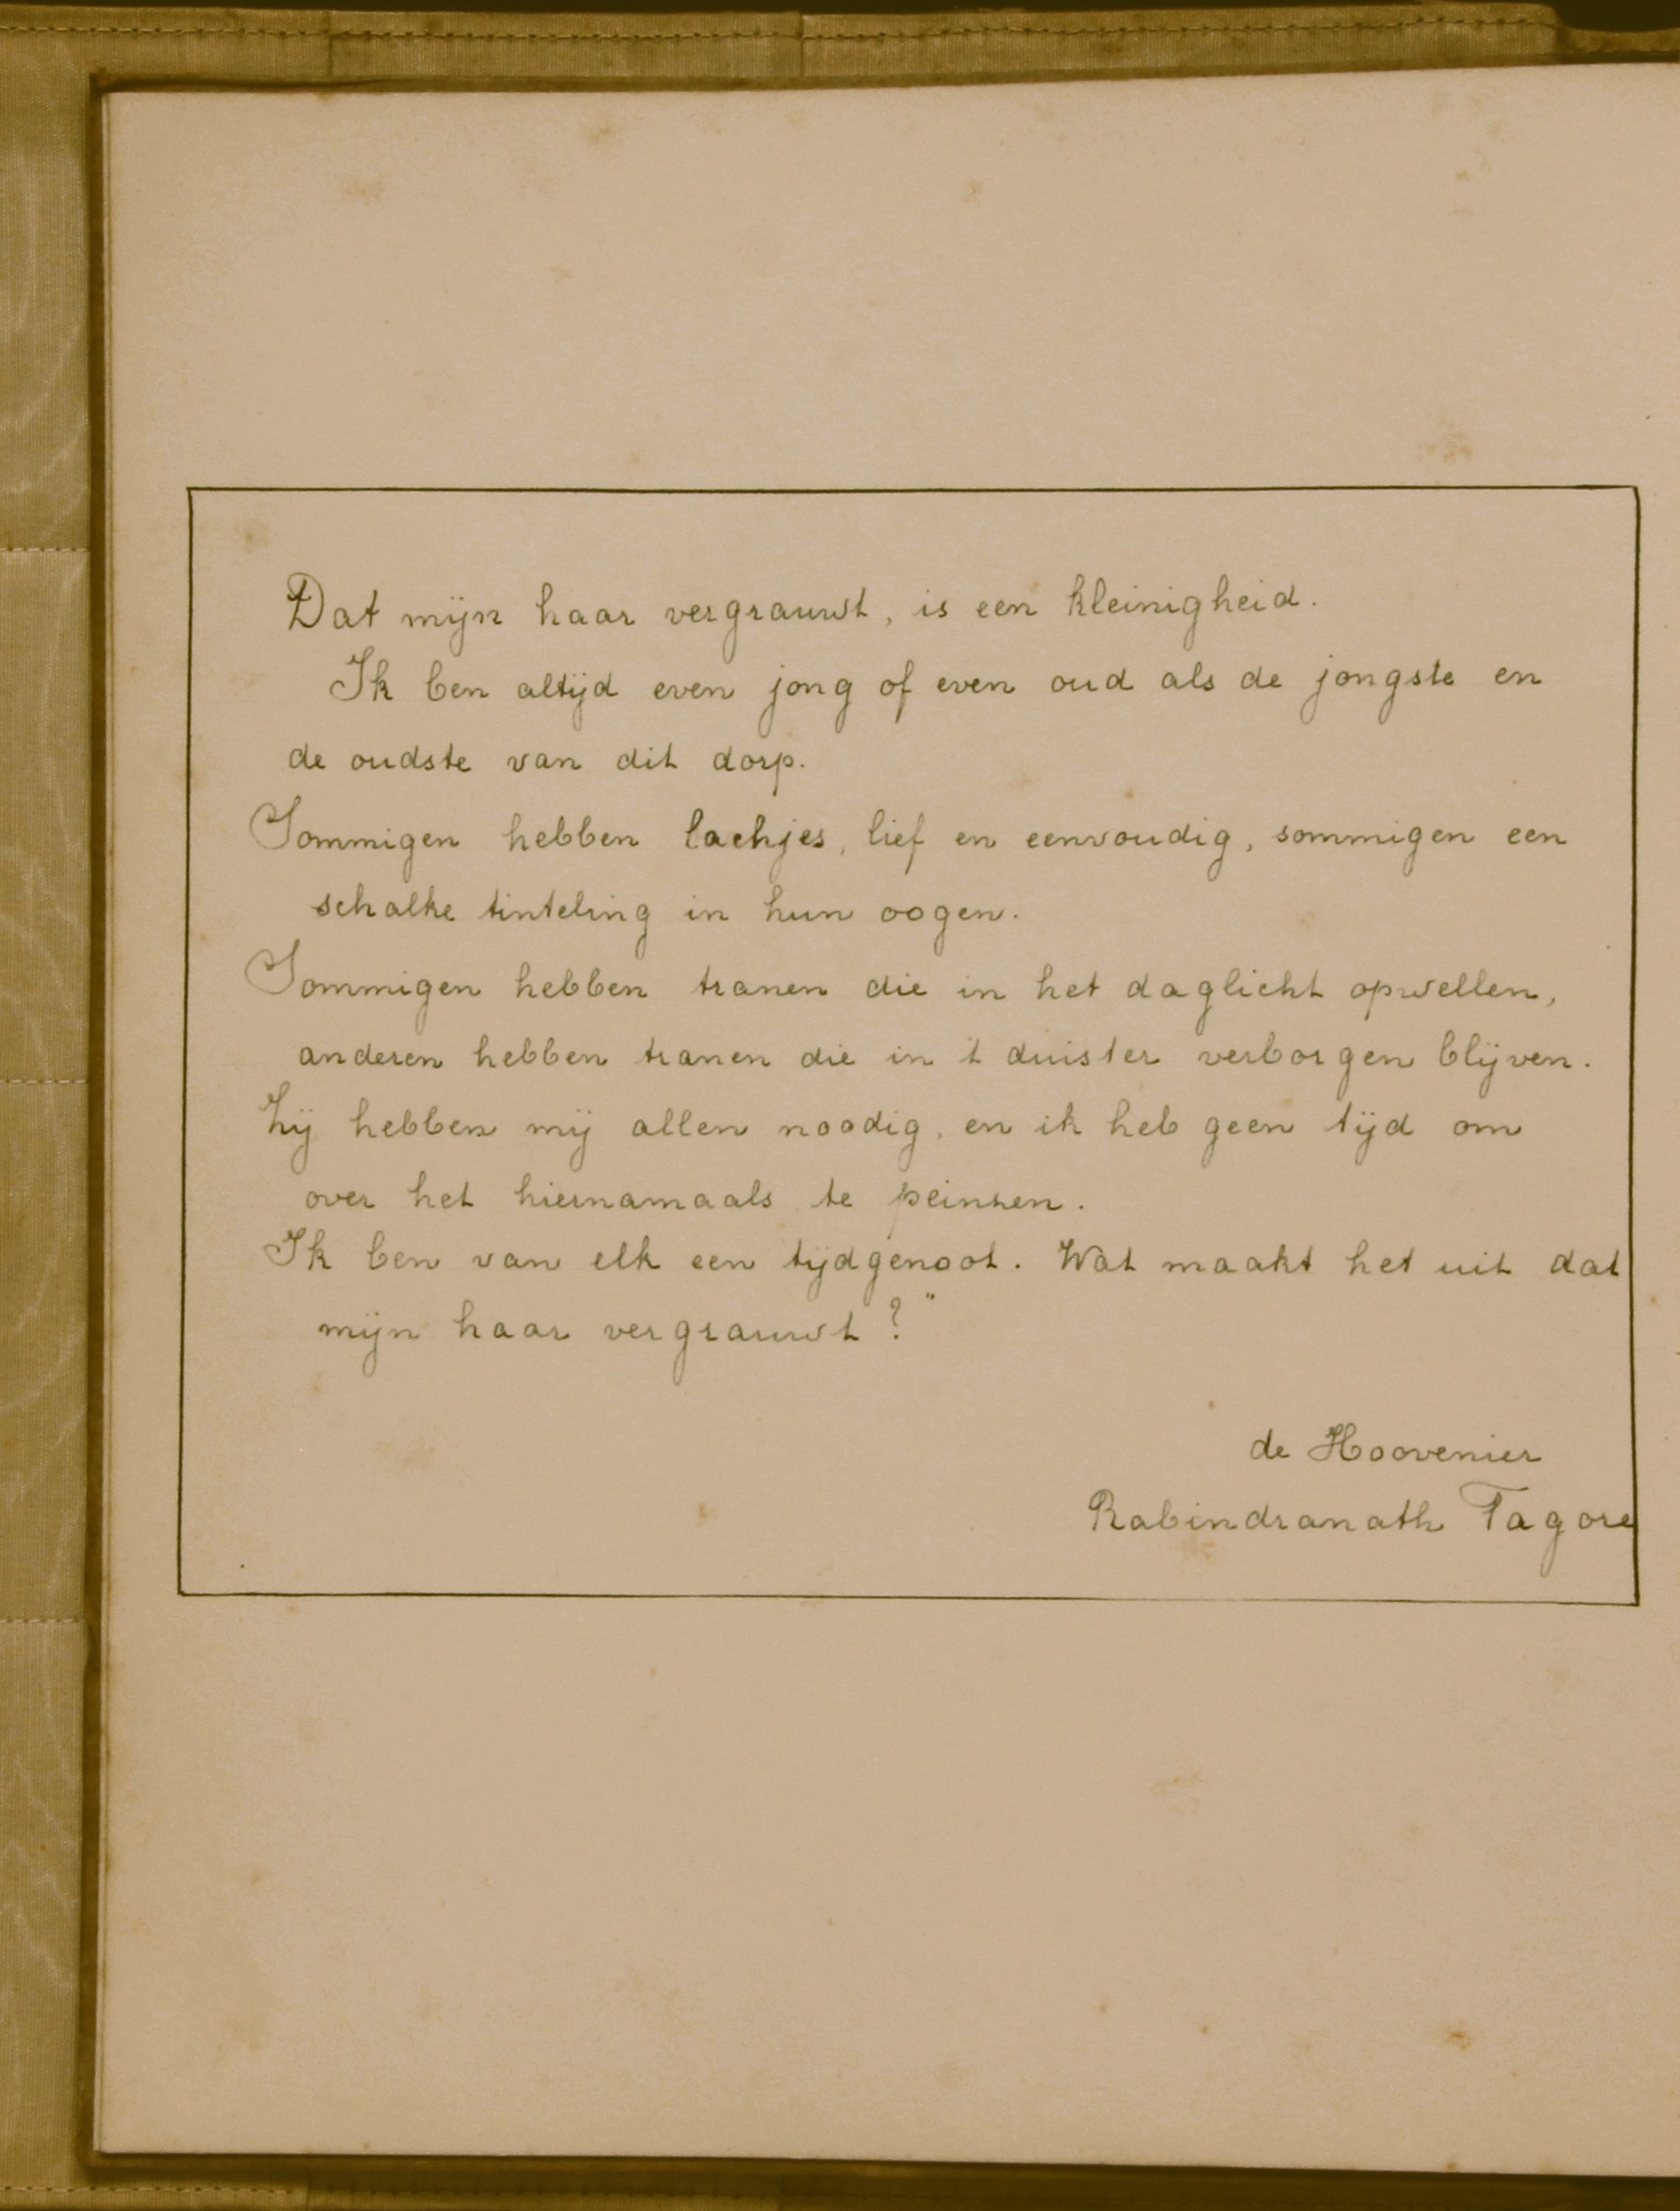 Dat mijn haar vergrauwt, is een kleinigheid.
Ik ben altijd even jong of even oud als de jongste en
de oudste van dit dorp.
Sommigen hebben lachjes, lief en eenvoudig, sommigen een
schalke tinteling in hun oogen.
Sommigen hebben tranen die in het daglicht opwellen,
anderen hebben tranen die in 't duister verborgen blijven.
Zij hebben mij allen noodig, en ik heb geen tijd om
over het hiernamaals te peinzen.
Ik ben van elk een tijdgenoot. Wat maakt het uit dat
mijn haar vergrauwt?"
de Hoovenier
Rabindranath Tagore